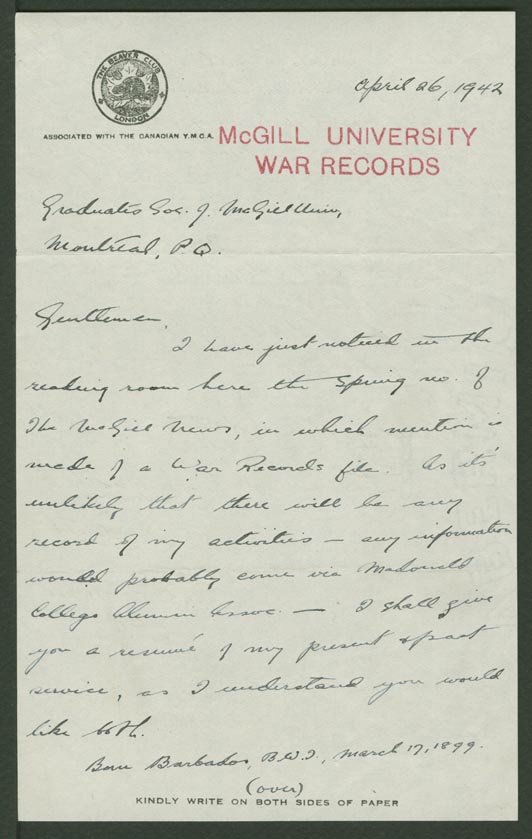 THE BEAVER CLUB
LONDON
ASSOCIATED WITH THE CANADIAN Y.M.C.A.
April 26, 1942
McGILL UNIVERSITY
WAR RECORDS
Graduates Soc. of McGill Univ,
Montreal, P.Q.
Gentlemen,
I have just noticed in the
reading room here the Spring no. of
The McGill News, in which mention is
made of a War Records file. As it's
unlikely that there will be any
record of my activities — any information
would probably come via Macdonald
College Alumni Assoc. — I shall give
you a resumé of my present & past
service, as I understand you would
like both.
Born Barbados, B.W.I., March 17, 1899.
(over)
KINDLY WRITE ON BOTH SIDES OF PAPER